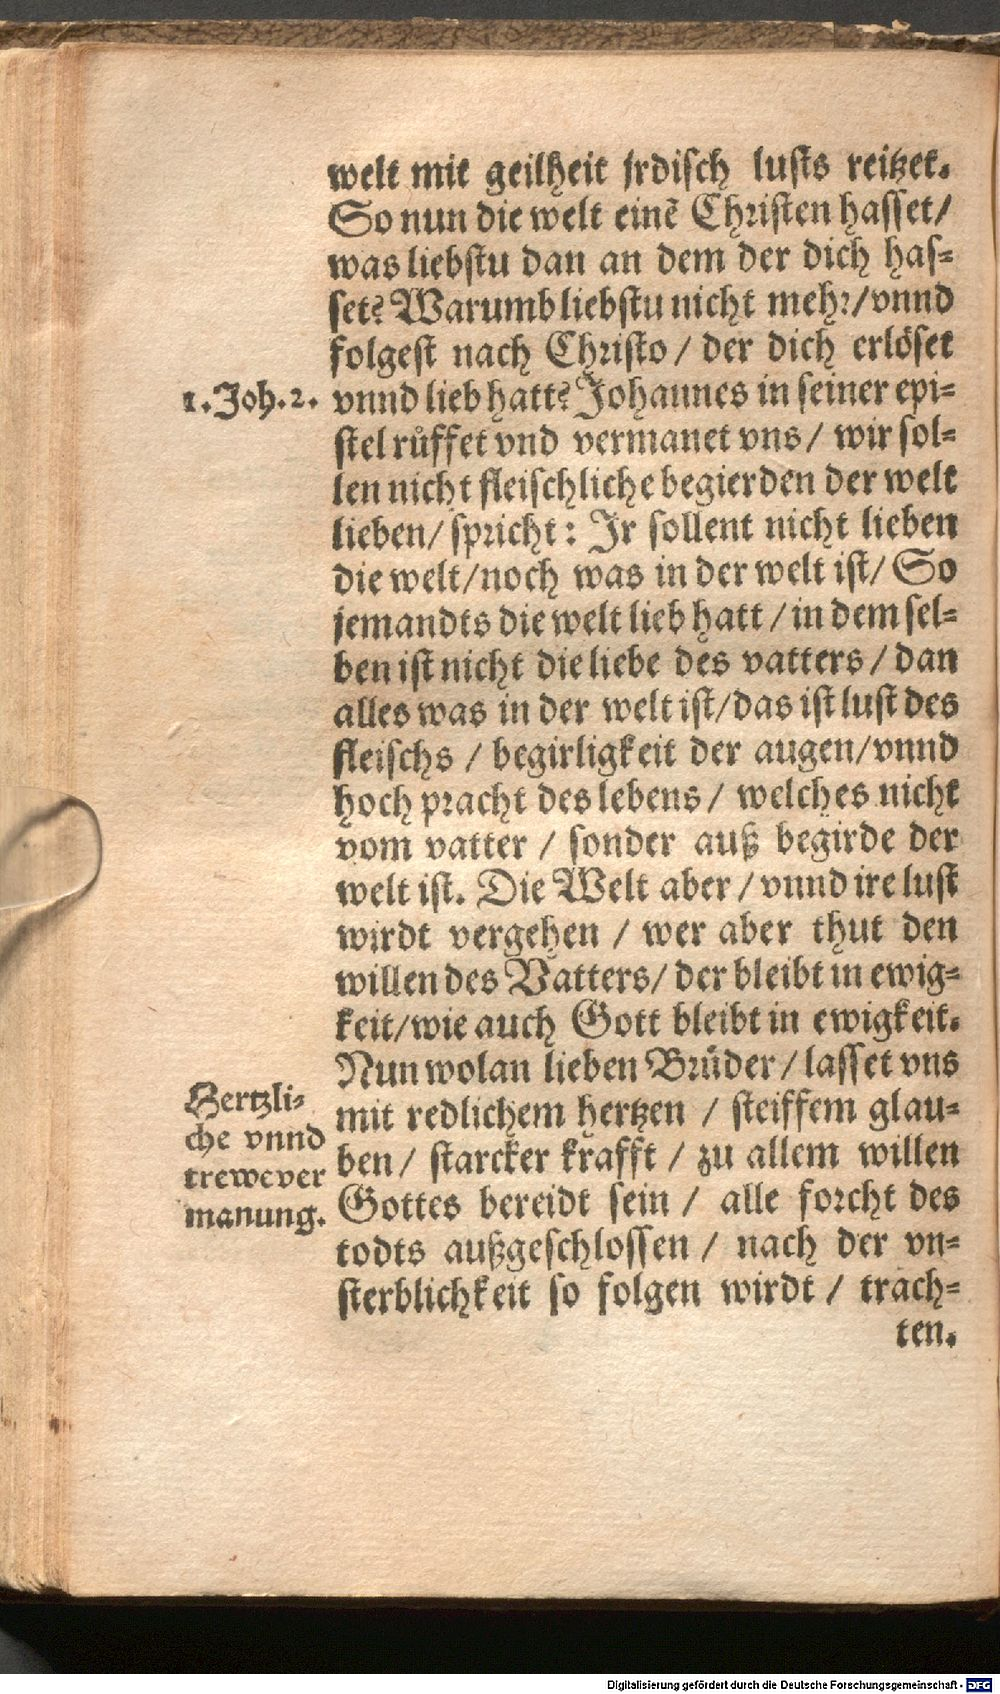 welt mit geilheit jrdisch lusts reitzet.
So nun die welt einē Christen hasset/
was liebstu dan an dem der dich has-
set? Warumb liebstu nicht mehr/vnnd
folgest nach Christo / der dich erlöset
1. Joh. 2.
vnnd lieb hatt? Johannes in seiner epi-
stel růffet vnd vermanet vns / wir sol-
len nicht fleischliche begierden der welt
lieben/ spricht: Jr sollent nicht lieben
die welt/noch was in der welt ist/ So
jemandts die welt lieb hatt / in dem sel-
ben ist nicht die liebe des vatters / dan
alles was in der welt ist/das ist lust des
fleischs / begirligkeit der augen/vnnd
hoch pracht des lebens / welches nicht
vom vatter / sonder auß begirde der
welt ist. Die Welt aber / vnnd ire lust
wirdt vergehen / wer aber thut den
willen des Vatters/ der bleibt in ewig-
keit/wie auch Gott bleibt in ewigkeit.
Nun wolan lieben Brüder / lasset vns
Hertzli-
che vnnd
trewe ver
manung.
mit redlichem hertzen / steiffem glau-
ben / starcker krafft / zu allem willen
Gottes bereidt sein / alle forcht des
todts außgeschlossen / nach der vn-
sterblichkeit so folgen wirdt / trach-
ten.
Digitalisierung gefördert durch die Deutsche Forschungsgemeinschaft - DFG